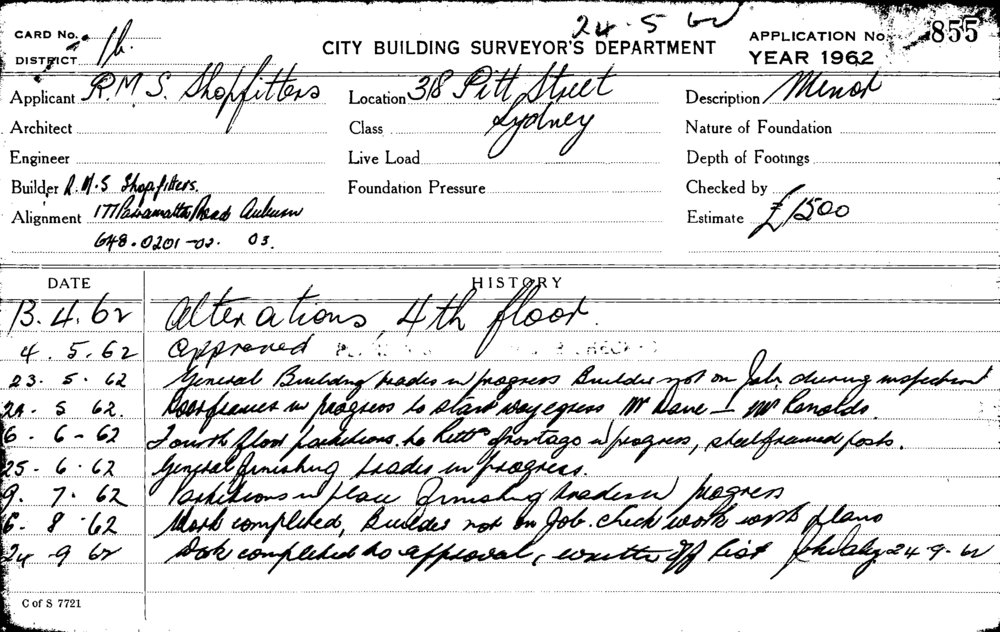 24.5.62
CARD No. 16.
DISTRICT
CITY BUILDING SURVEYOR'S DEPARTMENT
APPLICATION No. 855
YEAR 1962
Applicant R.M.S. Shopfitters
Location 318 Pitt Street
Sydney
Description Menor
Architect
Class
Nature of Foundation
Engineer
Live Load
Depth of Footings
Builder R.M.S Shopfitters.
Foundation Pressure
Checked by
Alignment 177 Parramatta Road Auburn
Estimate £1500
648.0201-02. 03.
DATE HISTORY
13.4.62 Alterations, 4th floor.
4.5.62 Approved
23.5.62 General Building trades in progress Builder not on Job, during inspection
62. Doorframes in progress to stairway egress Mr Dane - Mr Ronolds.
6-6-62 Fourth floor partitions to Pitt St frontage in progress, steel framed posts.
25-6.62 General finishing trades in progress.
9.7.62 Partitions in place finishing trades in progress
6.8.62 Work completed, Builder not on Job. Check work with plans
24-9 62 Work completed to approval, written off list 24-9-62
C of S 7721